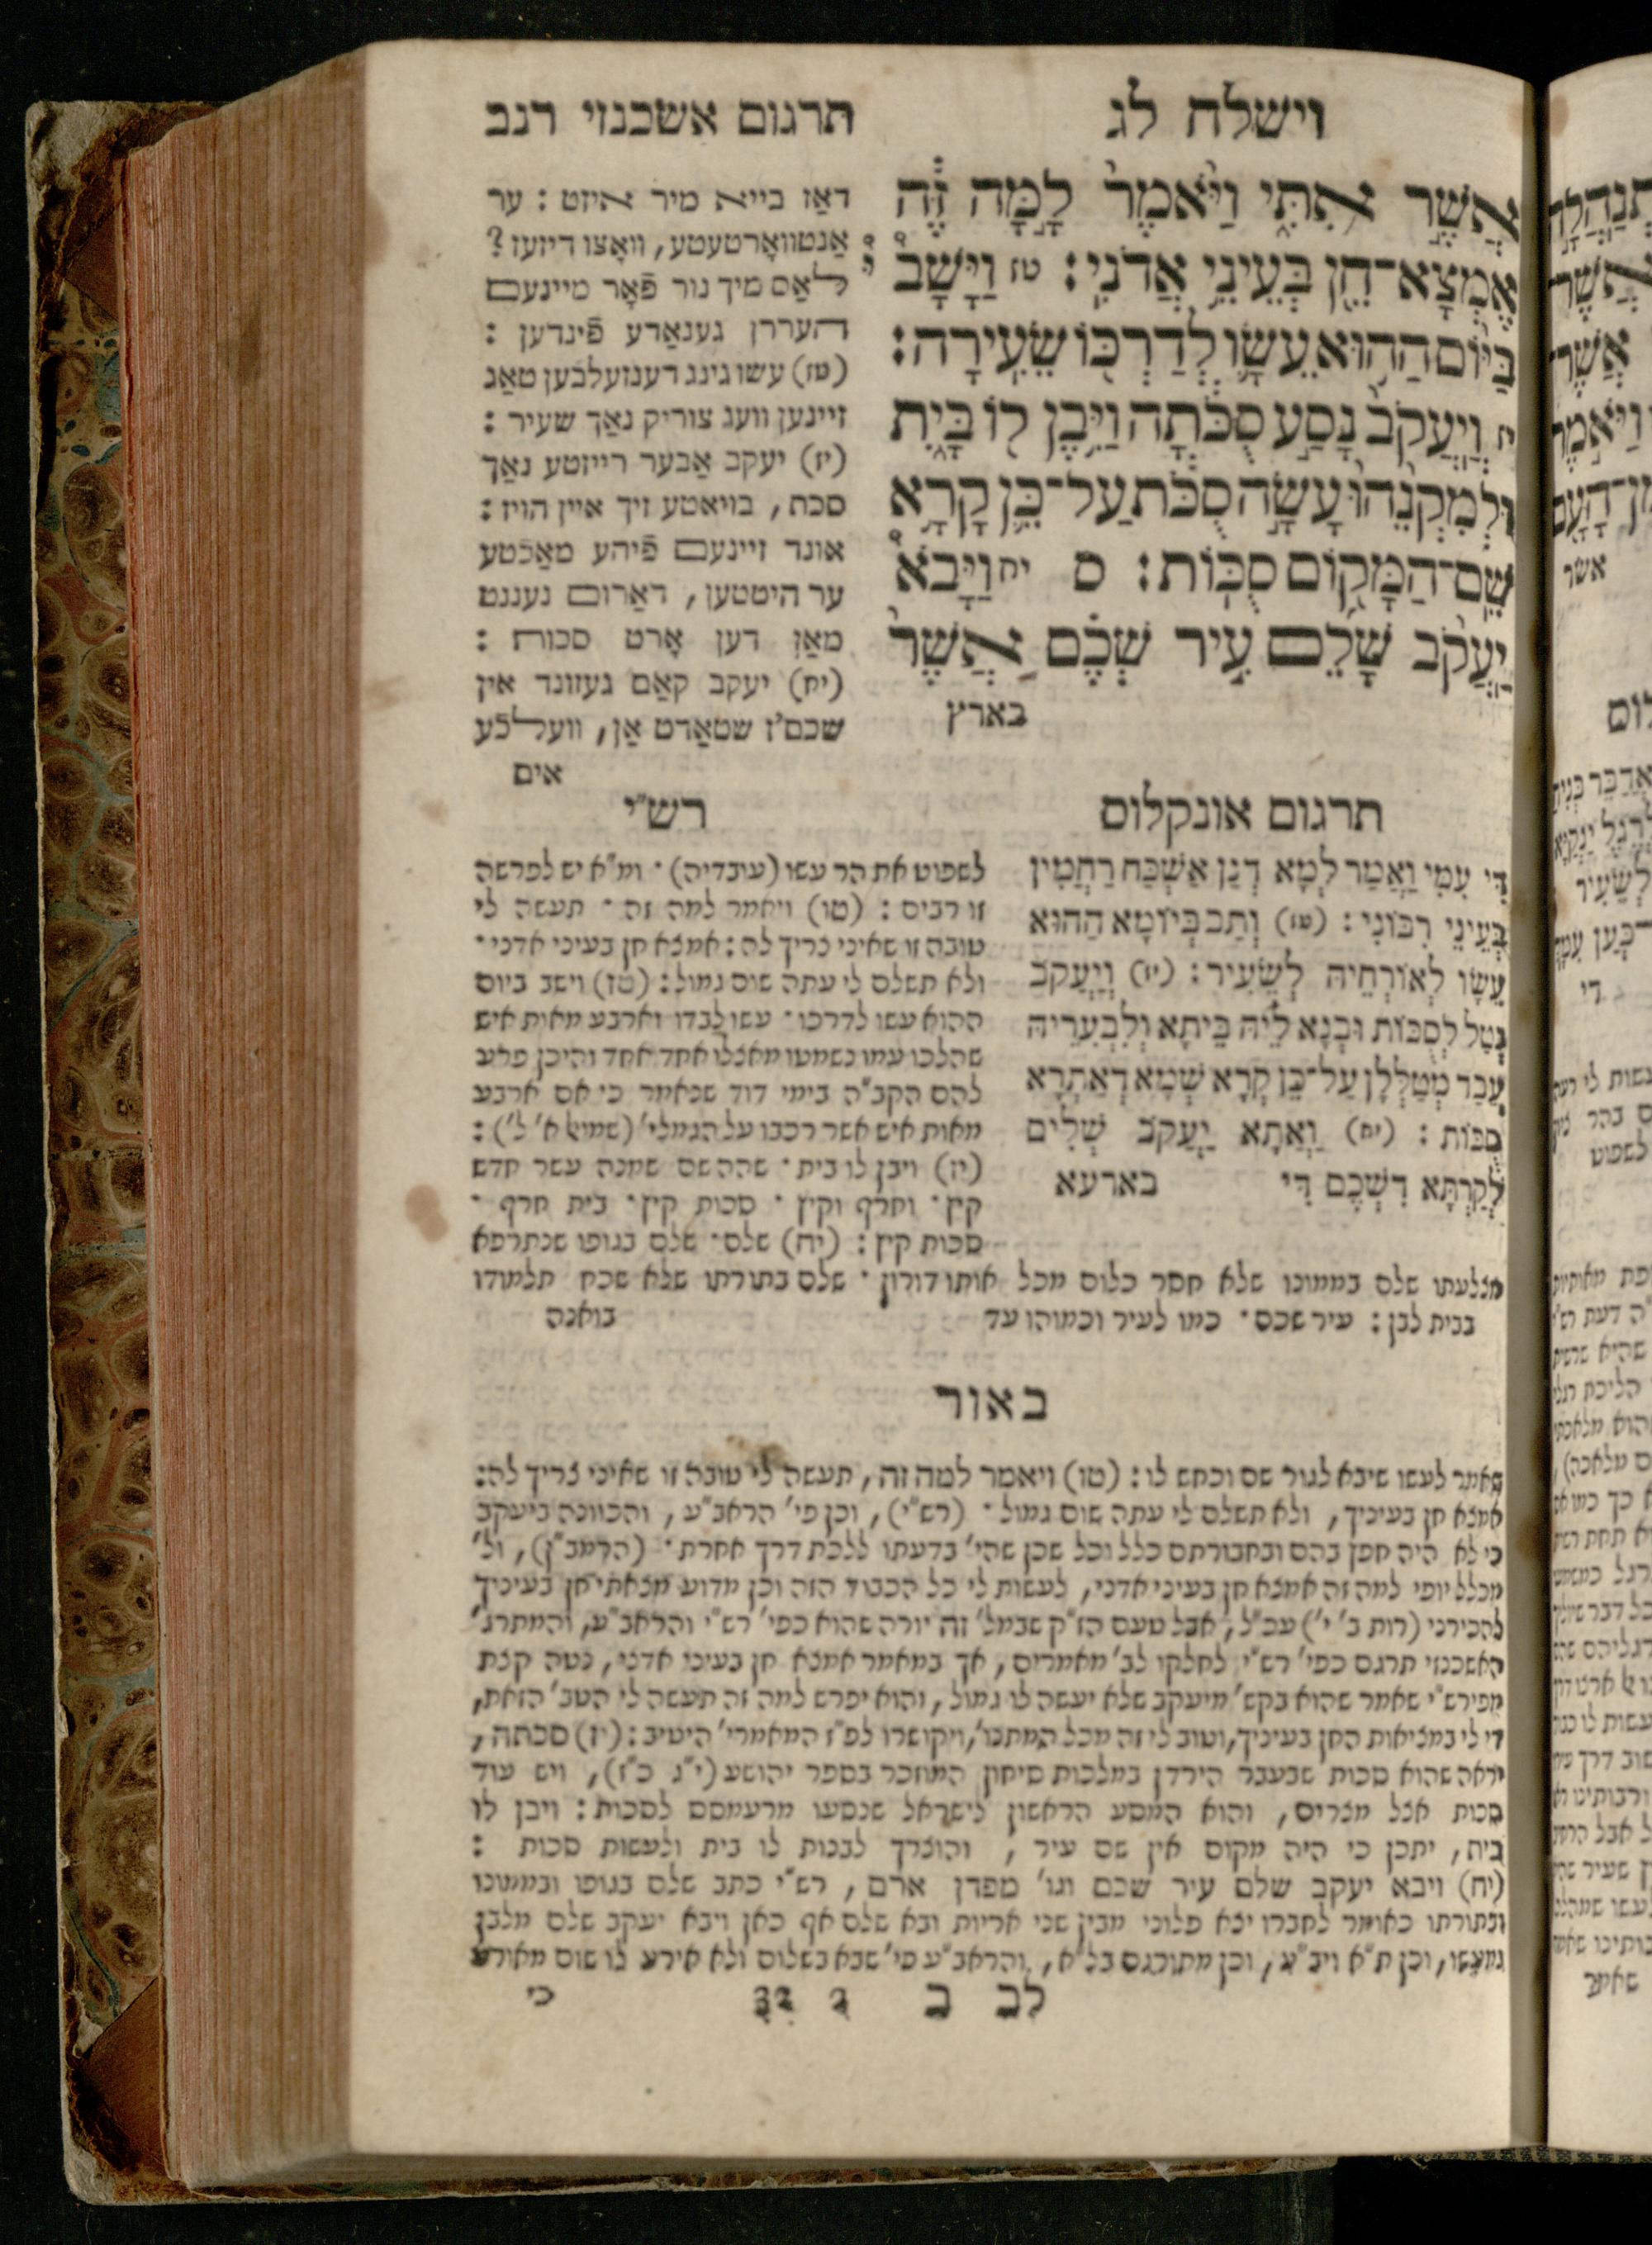 וישלח לג
תרגום אשכנזי רנב
אֲשֶׁר אִתִּי וַיֹּאמֶר לָמָּה זֶּה
אֶמְצָא־חֵן בְּעֵינֵי אֲדֹנִי׃ טז וַיָּשָׁב
בַּיּוֹם הַהוּא עֵשָׂו לְדַרְכּוֹ שֵׂעִירָה׃
יז וְיַעֲקֹב נָסַע סֻכֹּתָה וַיִּבֶן לוֹ בָּיִת
וּלְמִקְנֵהוּ עָשָׂה סֻכֹּת עַל־כֵּן קָרָא
שֵׁם־הַמָּקוֹם סֻכּוֹת׃ ס יח וַיָּבֹא
יַעֲקֹב שָׁלֵם עִיר שְׁכֶם אֲשֶׁר
בארץ
דאַז בייא מיר איזט : ער
אַנטוואָרטעטע, וואָצו דיזעז ?
לאַס מיך נור פֿאָר מיינעם
העררן גענאַדע פֿינדען :
(טז) עשו גינג דענזעלבען טאַג
זיינען וועג צוריק נאַך שעיר :
(יז) יעקב אַבער רייזטע נאַך
סכת, בויאטע זיך איין הויז :
אונד זיינעם פֿיהע מאַכטע
ער היטטען, דאַרום נעננט
מאַן דען אָרט סכות :
(יח) יעקב קאַם געזונד אין
שכם'ז שטאַדט אַן, וועלכע
אים
תרגום אונקלוס
דִּי עִמִּי וַאֲמַר לְמָא דְנַן אַשְׁכַּח רַחֲמִין
בְּעֵינֵי רִבּוֹנִי : (טז) וְתַב בְּיוֹמָא הַהוּא
עֵשָׂו לְאוֹרְחֵיהּ לְשֵׂעִיר : (יז) וְיַעֲקֹב
נְטַל לְסֻכּוֹת וּבְנָא לֵיהּ בֵּיתָא וְלִבְעִירֵיהּ
עֲבַד מְטַלְלָן עַל־כֵּן קְרָא שְׁמָא דְאַתְרָא
סֻכּוֹת : (יח) וַאֲתָא יַעֲקֹב שְׁלִים
לְקַרְתָּא דִשְׁכֶם דִּי בארעא
רש"י
לשפוט את הר עשו (עובדיה) · ומ"א יש לפרשה
זו רבים : (טו) ויאמר למה זה · תעשה לי
טובה זו שאיני צריך לה : אמצא חן בעיני אדני ·
ולא תשלם לי עתה שום גמול : (טז) וישב ביום
ההוא עשו לדרכו · עשו לבדו וארבע מאות איש
שהלכו עמו נשמטו מאצלו אחד אחד והיכן פרע
להם הקב"ה בימי דוד שנאמר כי אם ארבע
מאות איש אשר רכבו על הגמלי' (שמואל א' ל') :
(יז) ויבן לו בית · שהה שם שמנה עשר חדש
קיץ · וחרף וקיץ · סכות קיץ · בית חרף ·
סכות קיץ : (יח) שלם · שלם בגופו שנתרפא
מצלעתו שלם בממונו שלא חסר כלום מכל אותו דורון · שלם בתורתו שלא שכח תלמודו
בבית לבן : עיר שכם · כמו לעיר וכמוהו עד בואנה
באור
שאמר לעשו שיבא לגור שם וכחש לו : (טו) ויאמר למה זה, תעשה לי טובה זו שאיני צריך לה :
אמצא חן בעיניך, ולא תשלם לי עתה שום גמול · (רש"י), וכן פי' הראב"ע, והכוונה ביעקב
כי לא היה חפץ בהם ובחבורתם כלל וכל שכן שהי' בדעתו ללכת דרך אחרת · (הרמב"ן), ול'
מכלל יופי למה זה אמצא חן בעיני אדני, לעשות לי כל הכבוד הזה וכן מדוע מצאתי חן בעיניך
להכירני (רות ב' י') עכ"ל, אבל טעם הז"ק שבמל' זה יורה שהוא כפי' רש"י והראב"ע, והמתרג'
האשכנזי תרגם כפי' רש"י לחלקו לב' מאמרים, אך במאמר אמצא חן בעיני אדני, נטה קצת
מפירש"י שאמר שהוא בקש' מיעקב שלא יעשה לו גמול, והוא יפרש למה זה תעשה לי הטב' הזאת,
די לי במציאות החן בעיניך, וטוב לי זה מכל המתנו', ויקושרו לפ"ז המאמרי' היטיב : (יז) סכתה,
יראה שהוא סכות שבעבר הירדן במלכות סיחון המוזכר בספר יהושע (י"ג כ"ז), ויש עוד
סכות אצל מצרים, והוא המסע הראשון לישראל שנסעו מרעמסס לסכות : ויבן לו
בית, יתכן כי היה מקום אין שם עיר, והוצרך לבנות לו בית ולעשות סכות :
(יח) ויבא יעקב שלם עיר שכם וגו' מפדן ארם, רש"י כתב שלם בגופו ובממונו
ובתורתו כאומר לחברו יצא פלוני מבין שני אריות ובא שלם אף כאן ויבא יעקב שלם מלבן
ומעשו, וכן ת"א ויב"ע, וכן מתורגם בל"א, והראב"ע פי' שבא בשלום ולא אירע לו שום מאורע
לב ב כי